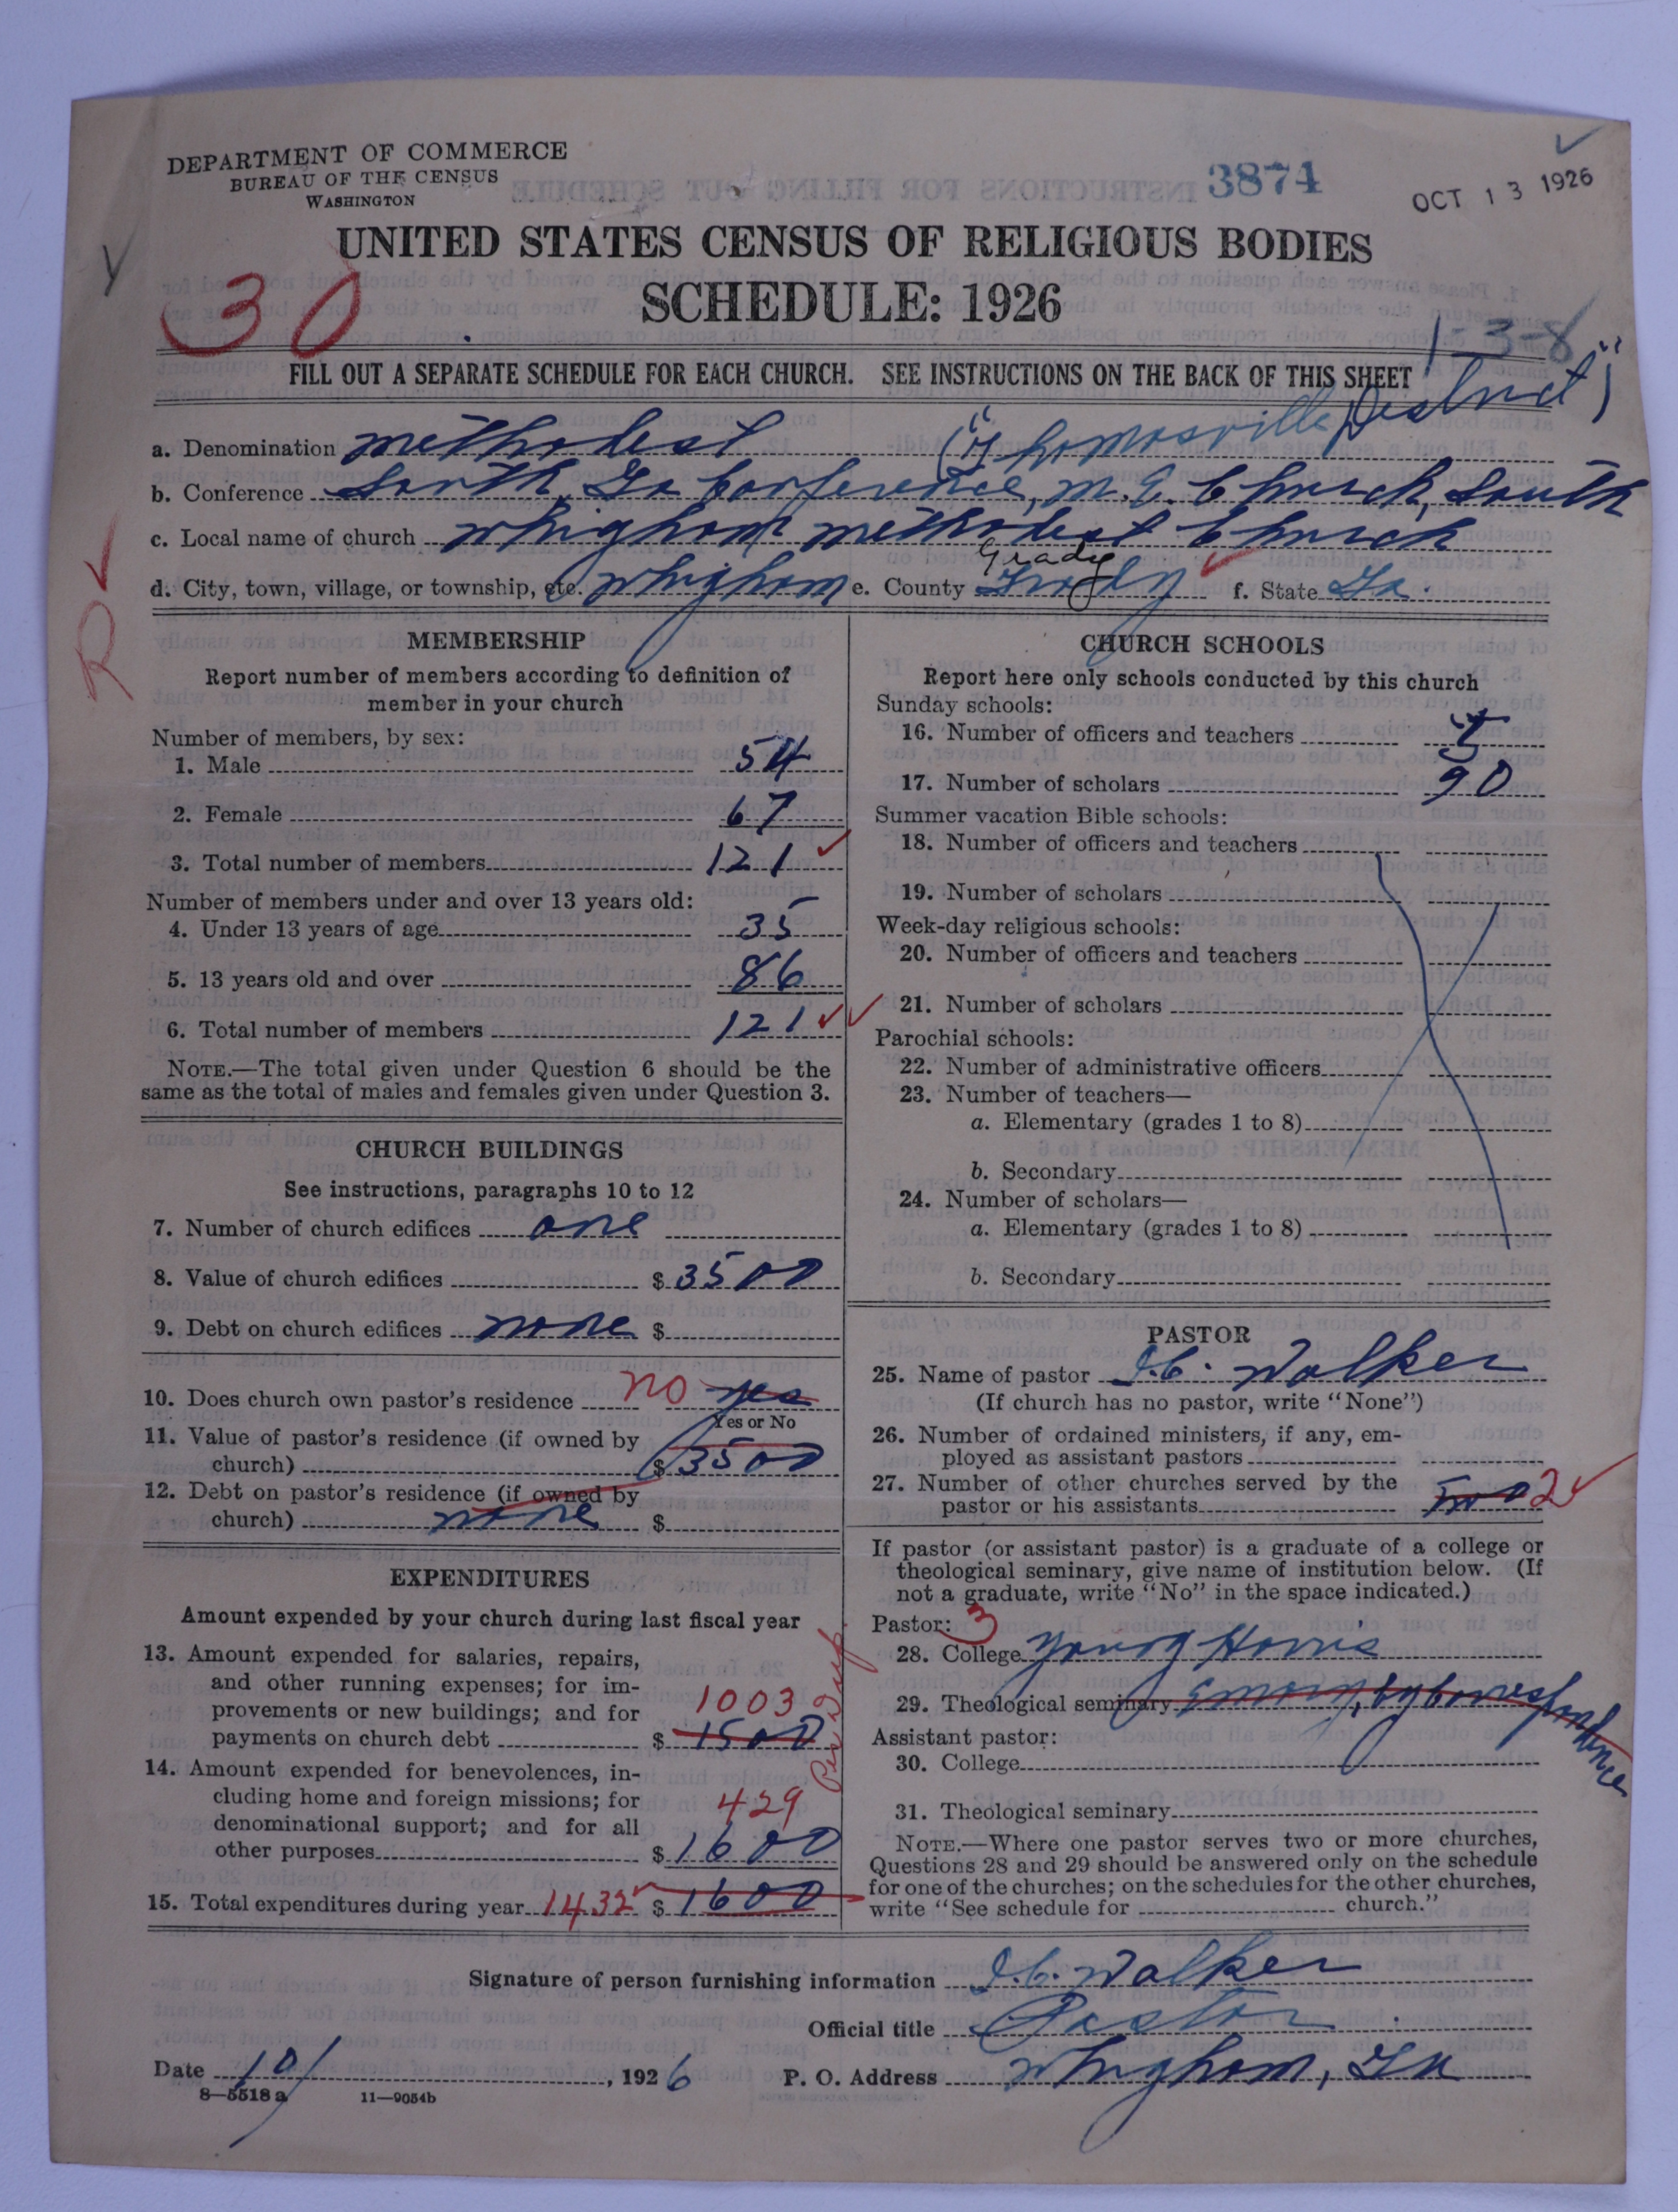 DEPARTMENT OF COMMERCE
BUREAU OF THE CENSUS
WASHINGTON
3874
OCT 13 1926
UNITED STATES CENSUS OF RELIGIOUS BODIES
SCHEDULE: 1926
30
1-3-8
FILL OUT A SEPARATE SCHEDULE FOR EACH CHURCH. SEE INSTRUCTIONS ON THE BACK OF THIS SHEET
a. Denomination Methodist ("Thomasville District")
b. Conference South Ga Conference, M.E. Church, South
c. Local name of church Whigham Methodist Church
Grady
d. City, town, village, or township, etc. Whigham e. County Grady f. State Ga.
MEMBERSHIP
Report number of members according to definition of
member in your church
Number of members, by sex:
1. Male 54
2. Female 67
3. Total number of members 121
Number of members under and over 13 years old:
4. Under 13 years of age 35
5. 13 years old and over 86
6. Total number of members 121
NOTE.—The total given under Question 6 should be the
same as the total of males and females given under Question 3.
CHURCH BUILDINGS
See instructions, paragraphs 10 to 12
7. Number of church edifices one
8. Value of church edifices $ 3500
9. Debt on church edifices none $
10. Does church own pastor's residence no yes
Yes or No
11. Value of pastor's residence (if owned by
church) $ 3500
12. Debt on pastor's residence (if owned by
church) none $
EXPENDITURES
Amount expended by your church during last fiscal year
13. Amount expended for salaries, repairs,
and other running expenses; for im-
provements or new buildings; and for
payments on church debt $ 1500
1003
14. Amount expended for benevolences, in-
cluding home and foreign missions; for
denominational support; and for all
other purposes $ 1600
429
15. Total expenditures during year 1432 $ 1600
CHURCH SCHOOLS
Report here only schools conducted by this church
Sunday schools:
16. Number of officers and teachers
17. Number of scholars 90
Summer vacation Bible schools:
18. Number of officers and teachers
19. Number of scholars
Week-day religious schools:
20. Number of officers and teachers
21. Number of scholars
Parochial schools:
22. Number of administrative officers
23. Number of teachers—
a. Elementary (grades 1 to 8)
b. Secondary
24. Number of scholars—
a. Elementary (grades 1 to 8)
b. Secondary
PASTOR
25. Name of pastor J.C. Walker
(If church has no pastor, write "None")
26. Number of ordained ministers, if any, em-
ployed as assistant pastors
27. Number of other churches served by the
pastor or his assistants two 2
If pastor (or assistant pastor) is a graduate of a college or
theological seminary, give name of institution below. (If
not a graduate, write "No" in the space indicated.)
Pastor: 3
28. College Young Harris
29. Theological seminary Emory, by Correspondence
Assistant pastor:
30. College
31. Theological seminary
NOTE.—Where one pastor serves two or more churches,
Questions 28 and 29 should be answered only on the schedule
for one of the churches; on the schedules for the other churches,
write "See schedule for church."
Signature of person furnishing information J.C. Walker
Official title Pastor
Date 10/, 1926 P. O. Address Whigham, Ga
8—5518a 11—9054b